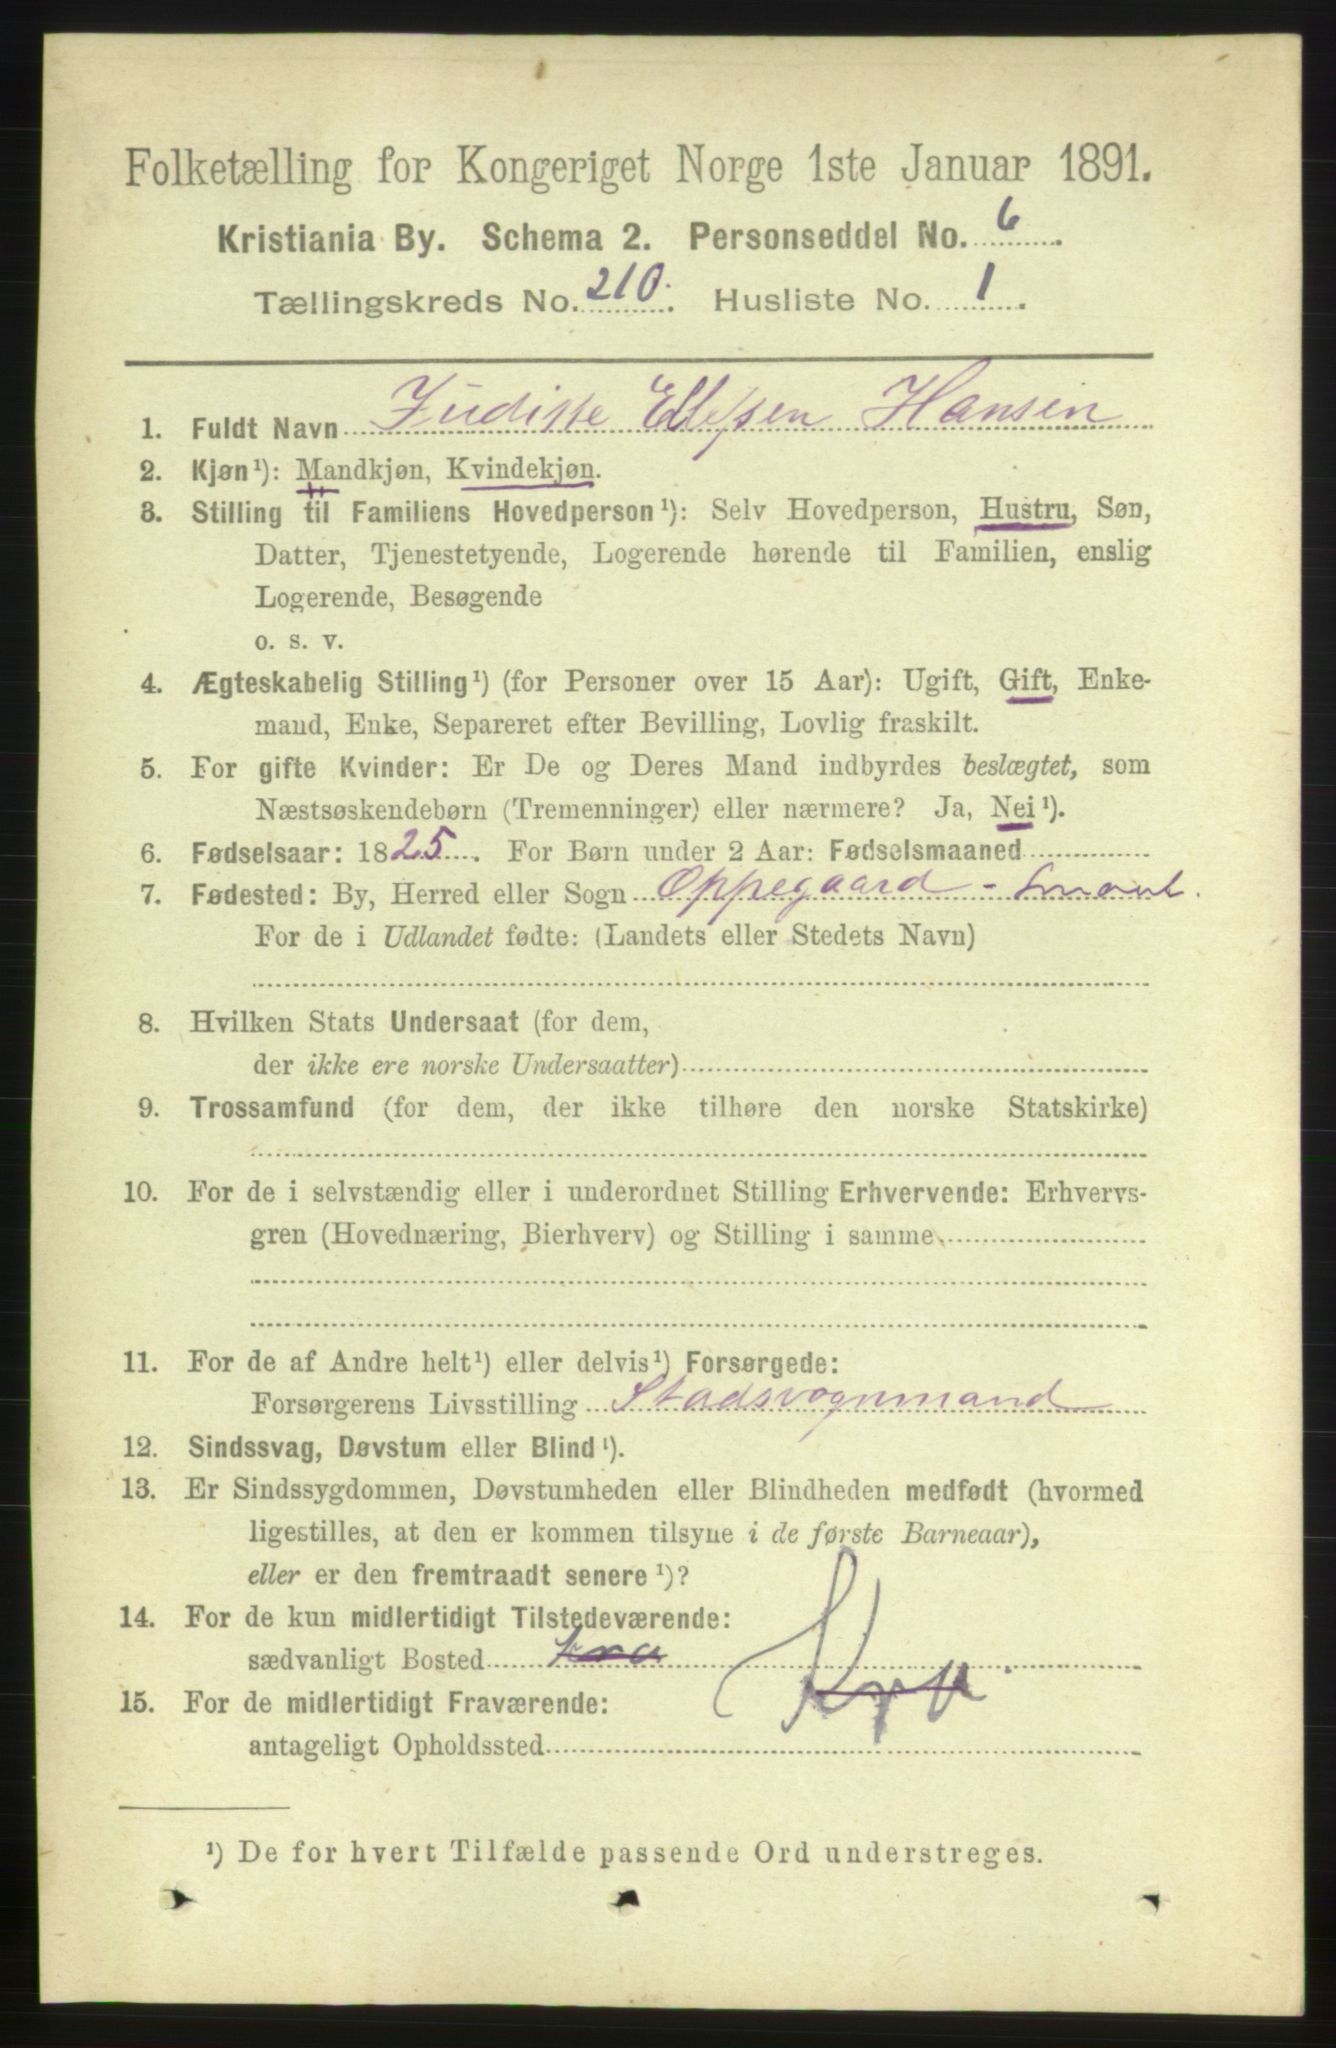 Folketælling for Kongeriget Norge 1ste Januar 1891.
Kristiania By. Schema 2. Personseddel No. 6.
Tællingskreds No. 210. Husliste No. 1.
1. Fuldt Navn Judisse Ellefsen Hansen
2. Kjøn¹): Mandkjøn, Kvindekjøn.
3. Stilling til Familiens Hovedperson¹): Selv Hovedperson, Hustru, Søn,
Datter, Tjenestetyende, Logerende hørende til Familien, enslig
Logerende, Besøgende
o. s. v.
4. Ægteskabelig Stilling¹) (for Personer over 15 Aar): Ugift, Gift, Enke-
mand, Enke, Separeret efter Bevilling, Lovlig fraskilt.
5. For gifte Kvinder: Er De og Deres Mand indbyrdes beslægtet, som
Næstsøskendebørn (Tremenninger) eller nærmere? Ja, Nei¹).
6. Fødselsaar: 1825. For Børn under 2 Aar: Fødselsmaaned
7. Fødested: By, Herred eller Sogn Oppegaard - Smaal.
For de i Udlandet fødte: (Landets eller Stedets Navn)
8. Hvilken Stats Undersaat (for dem,
der ikke ere norske Undersaatter)
9. Trossamfund (for dem, der ikke tilhøre den norske Statskirke)
10. For de i selvstændig eller i underordnet Stilling Erhvervende: Erhvervs-
gren (Hovednæring, Bierhverv) og Stilling i samme
11. For de af Andre helt¹) eller delvis¹) Forsørgede:
Forsørgerens Livsstilling Stadsvognmand
12. Sindssvag, Døvstum eller Blind¹).
13. Er Sindssygdommen, Døvstumheden eller Blindheden medfødt (hvormed
ligestilles, at den er kommen tilsyne i de første Barneaar),
eller er den fremtraadt senere¹)?
14. For de kun midlertidigt Tilstedeværende:
sædvanligt Bosted
15. For de midlertidigt Fraværende:
antageligt Opholdssted
¹) De for hvert Tilfælde passende Ord understreges.